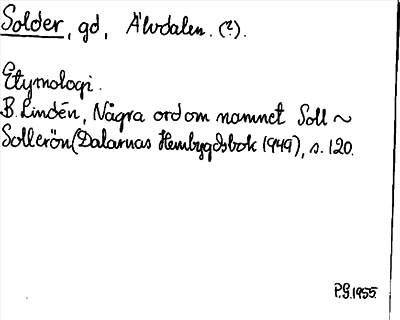 Solder, gd, Älvdalen. (?).
Etymologi.
B. Lindén, Några ord om namnet Soll ~
Sollerön (Dalarnas Hembygdsbok 1949), s. 120.
P.G. 1955.